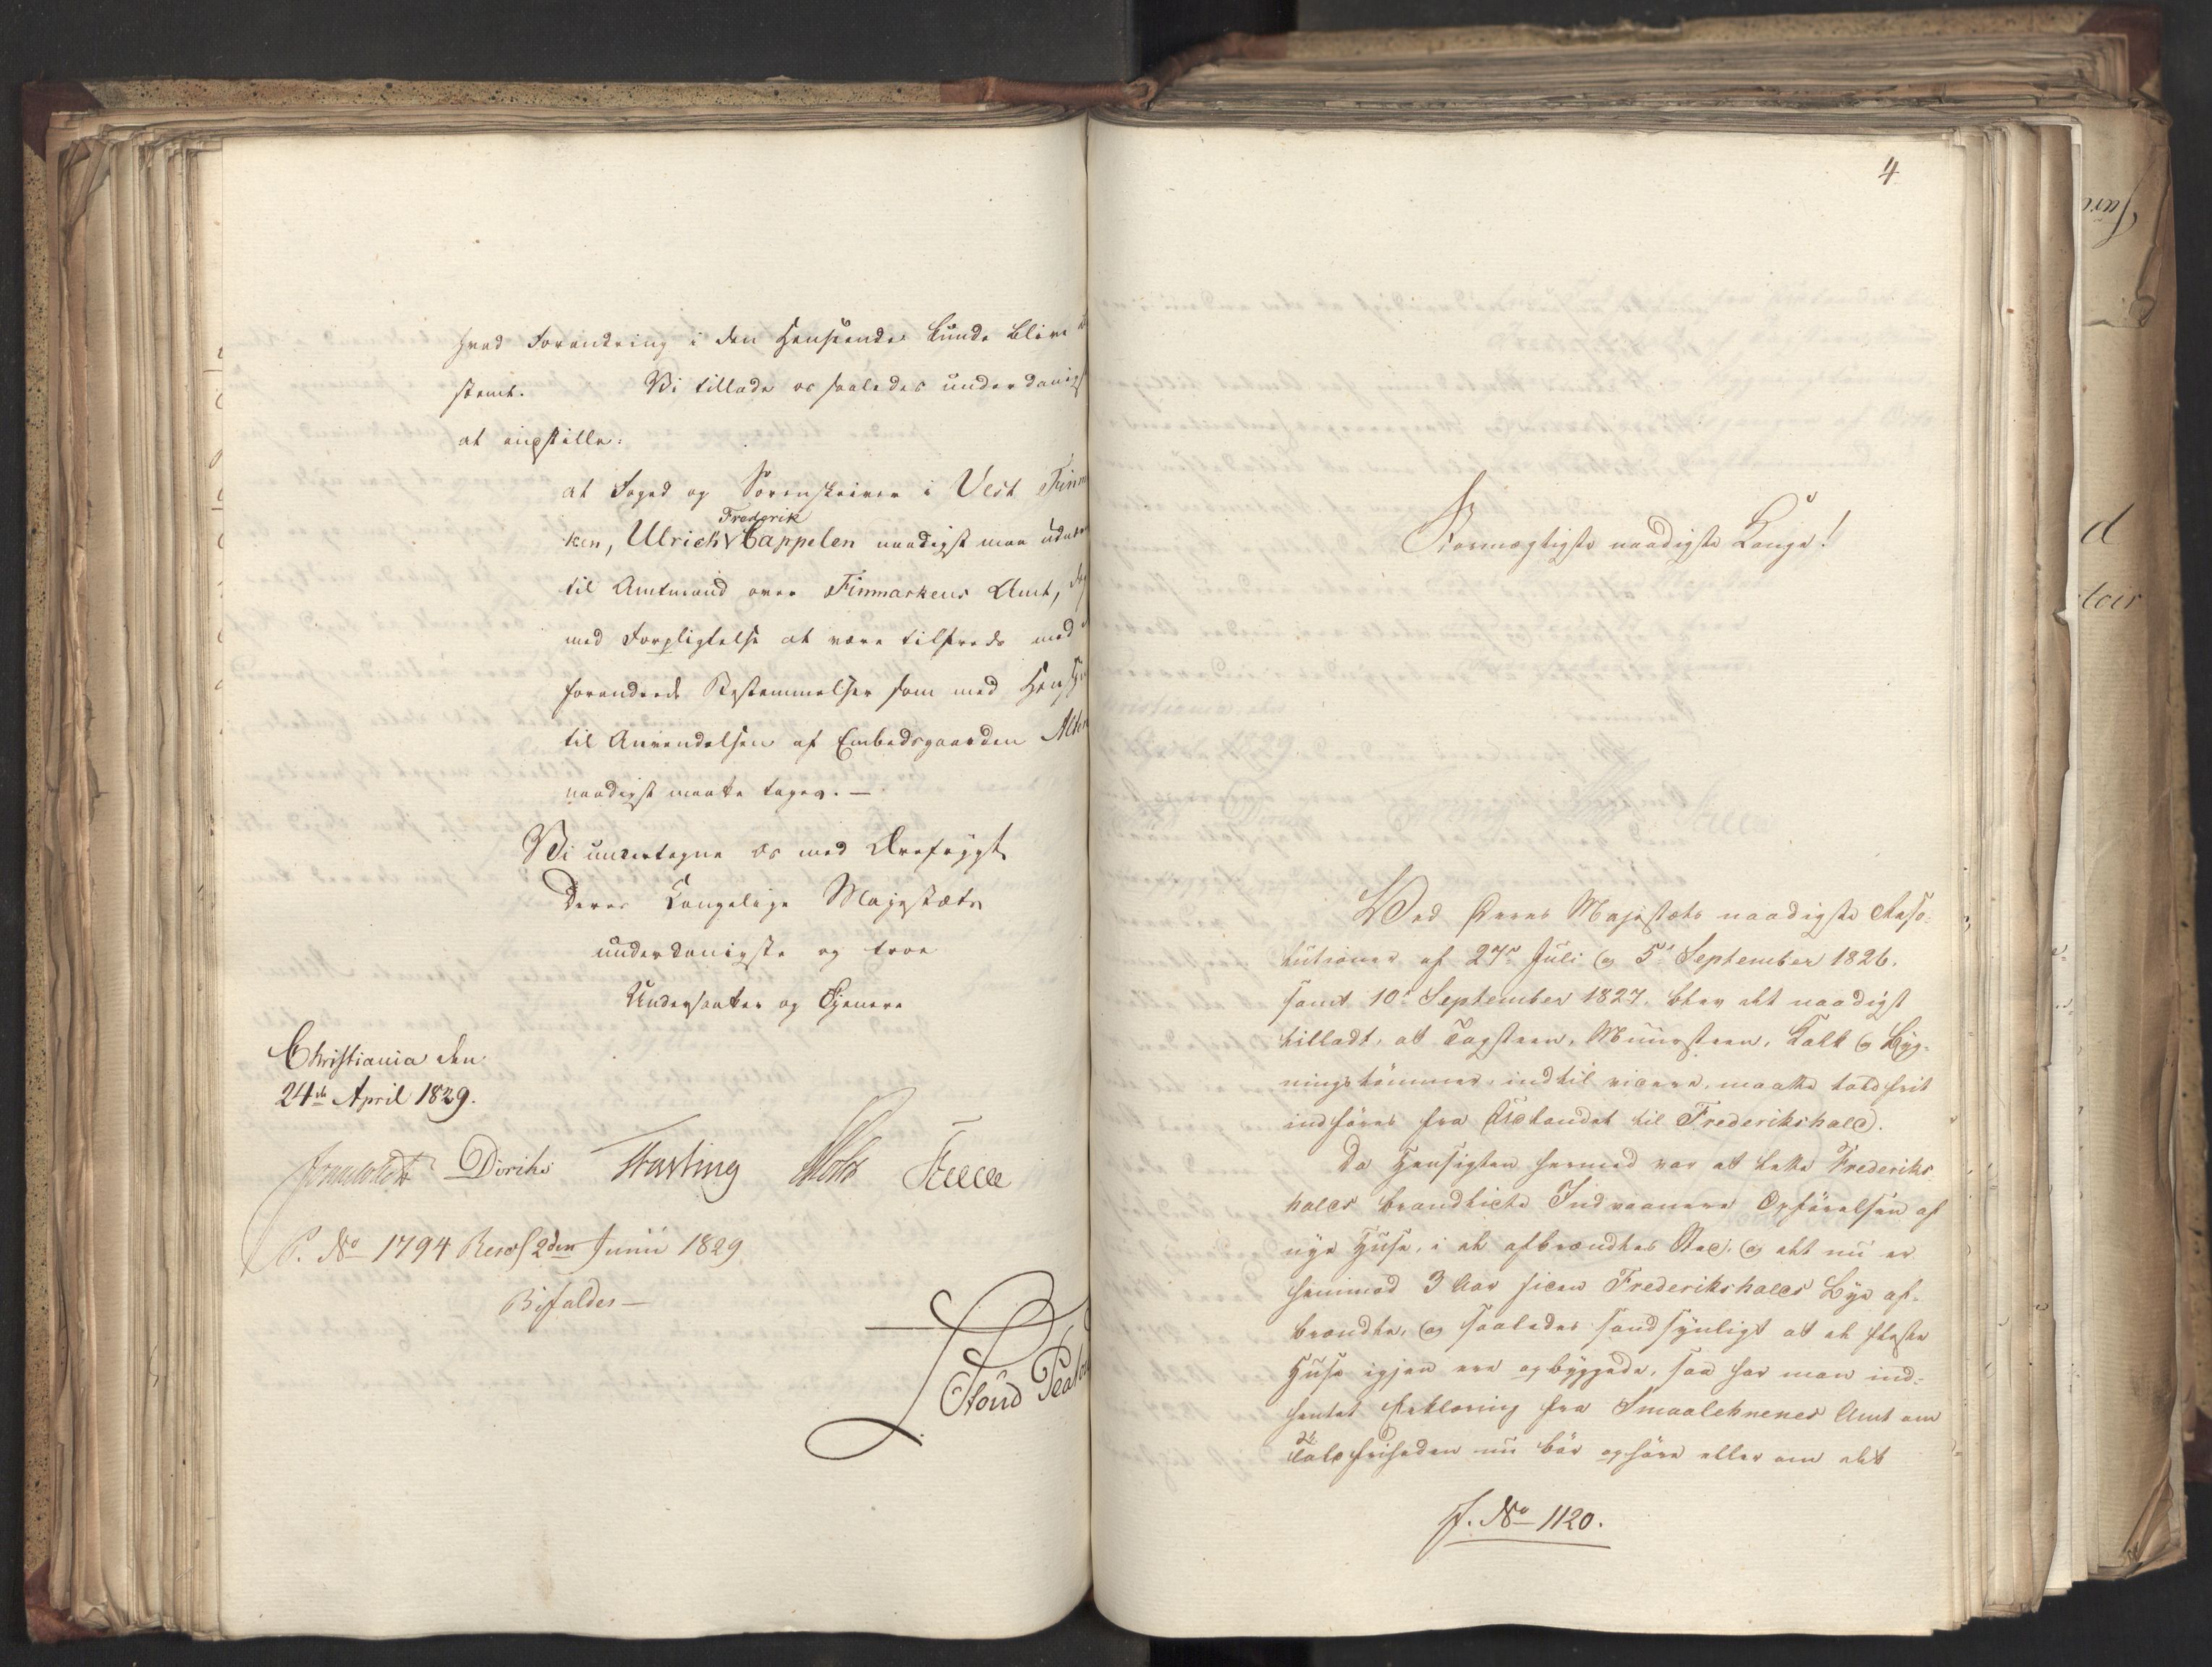 hvad Forandring i den Henseende kunde blive
stemt. Vi tillade os saaledes underdanigst
at indstille:
at Foged og Sorenskriver i Vest Finm
Frederik
ken, Ulrich Cappelen naadigst maa udnæ
til Amtmand over Finmarkens Amt,
med Forpligtelse at være tilfreds med
forandrede Bestemmelser som med Hensy
til Anvendelsen af Embedsgaarden Alten
naadigst maatte tages. —
Vi undertegne os med Ærefrygt
Deres Kongelige Majestæts
underdanigste og troe
Undersaatter og Tjenere
Christiania den
24de April 1829.
Diriks Fasting Holst
P. No 1794 Resol 2den Junii 1829
Bifaldes —
4
Stormægtigste naadigste Konge!
Ved Deres Majestæts naadigste Reso-
lutioner af 27de Juli og 5te September 1826.
samt 10de September 1827. blev det naadigst
tilladt, at Tagsteen, Muursteen, Kalk og Byg-
ningstømmer, indtil videre, maatte toldfrit
indføres fra Udlandet til Frederikshald.
Da Hensigten hermed var at lette Frederiks
halds brandlidte Indvaanere Opførelsen af
nye Huse, i de afbrændtes Sted, og det nu er
henimod 3 Aar siden Frederikshalds Bye af-
brændte, og saaledes sandsynligt at de fleste
Huse igjen ere opbyggede, saa har man ind-
hentet Erklæring fra Smaalehnenes Amt om
Toldfriheden nu bør ophøre eller om det
J. No 1120.